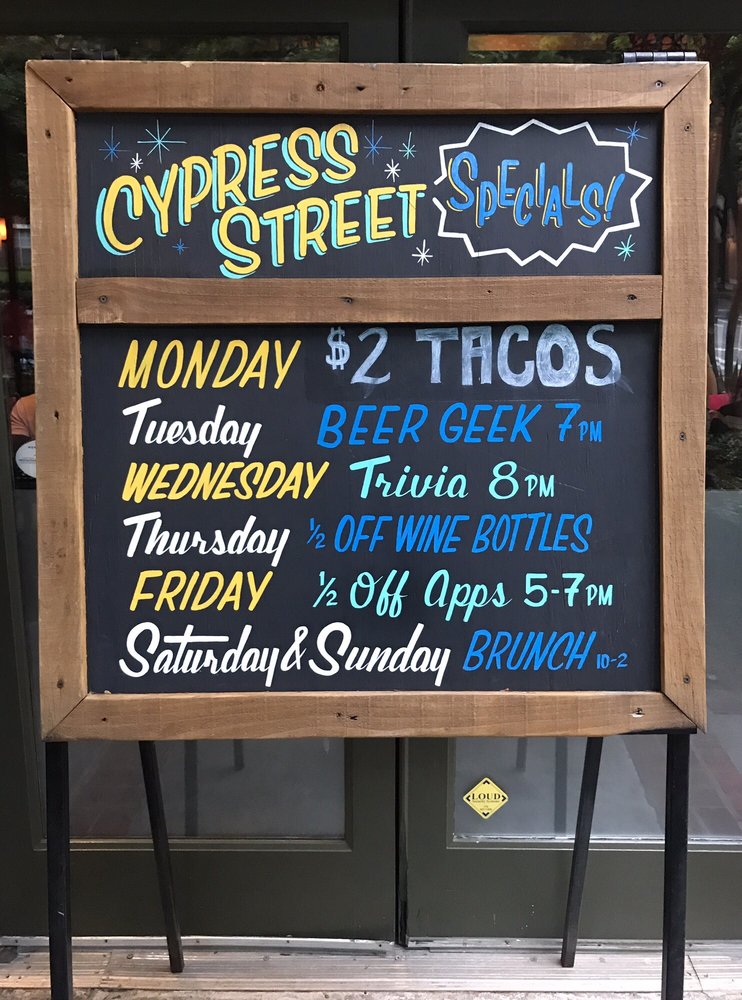 CYPRESS
STREET
SPECIALS!
MONDAY $2 TACOS
Tuesday BEER GEEK 7PM
WEDNESDAY Trivia 8PM
Thursday ½ OFF WINE BOTTLES
FRIDAY ½ Off Apps 5-7PM
Saturday & Sunday BRUNCH 10-2
LOUD